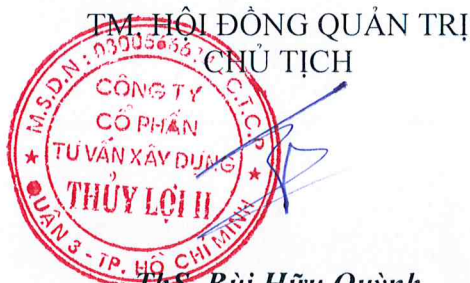 TM. HỘI ĐỒNG QUẢN TRỊ
CHỦ TỊCH
M.S.D.N: C.T.C.P
CÔNG TY
CỔ PHẦN
TƯ VẤN XÂY DỰNG
THỦY LỢI II
QUẬN 3 - TP. HỒ CHÍ MINH
ThS. Bùi Hữu Quỳnh